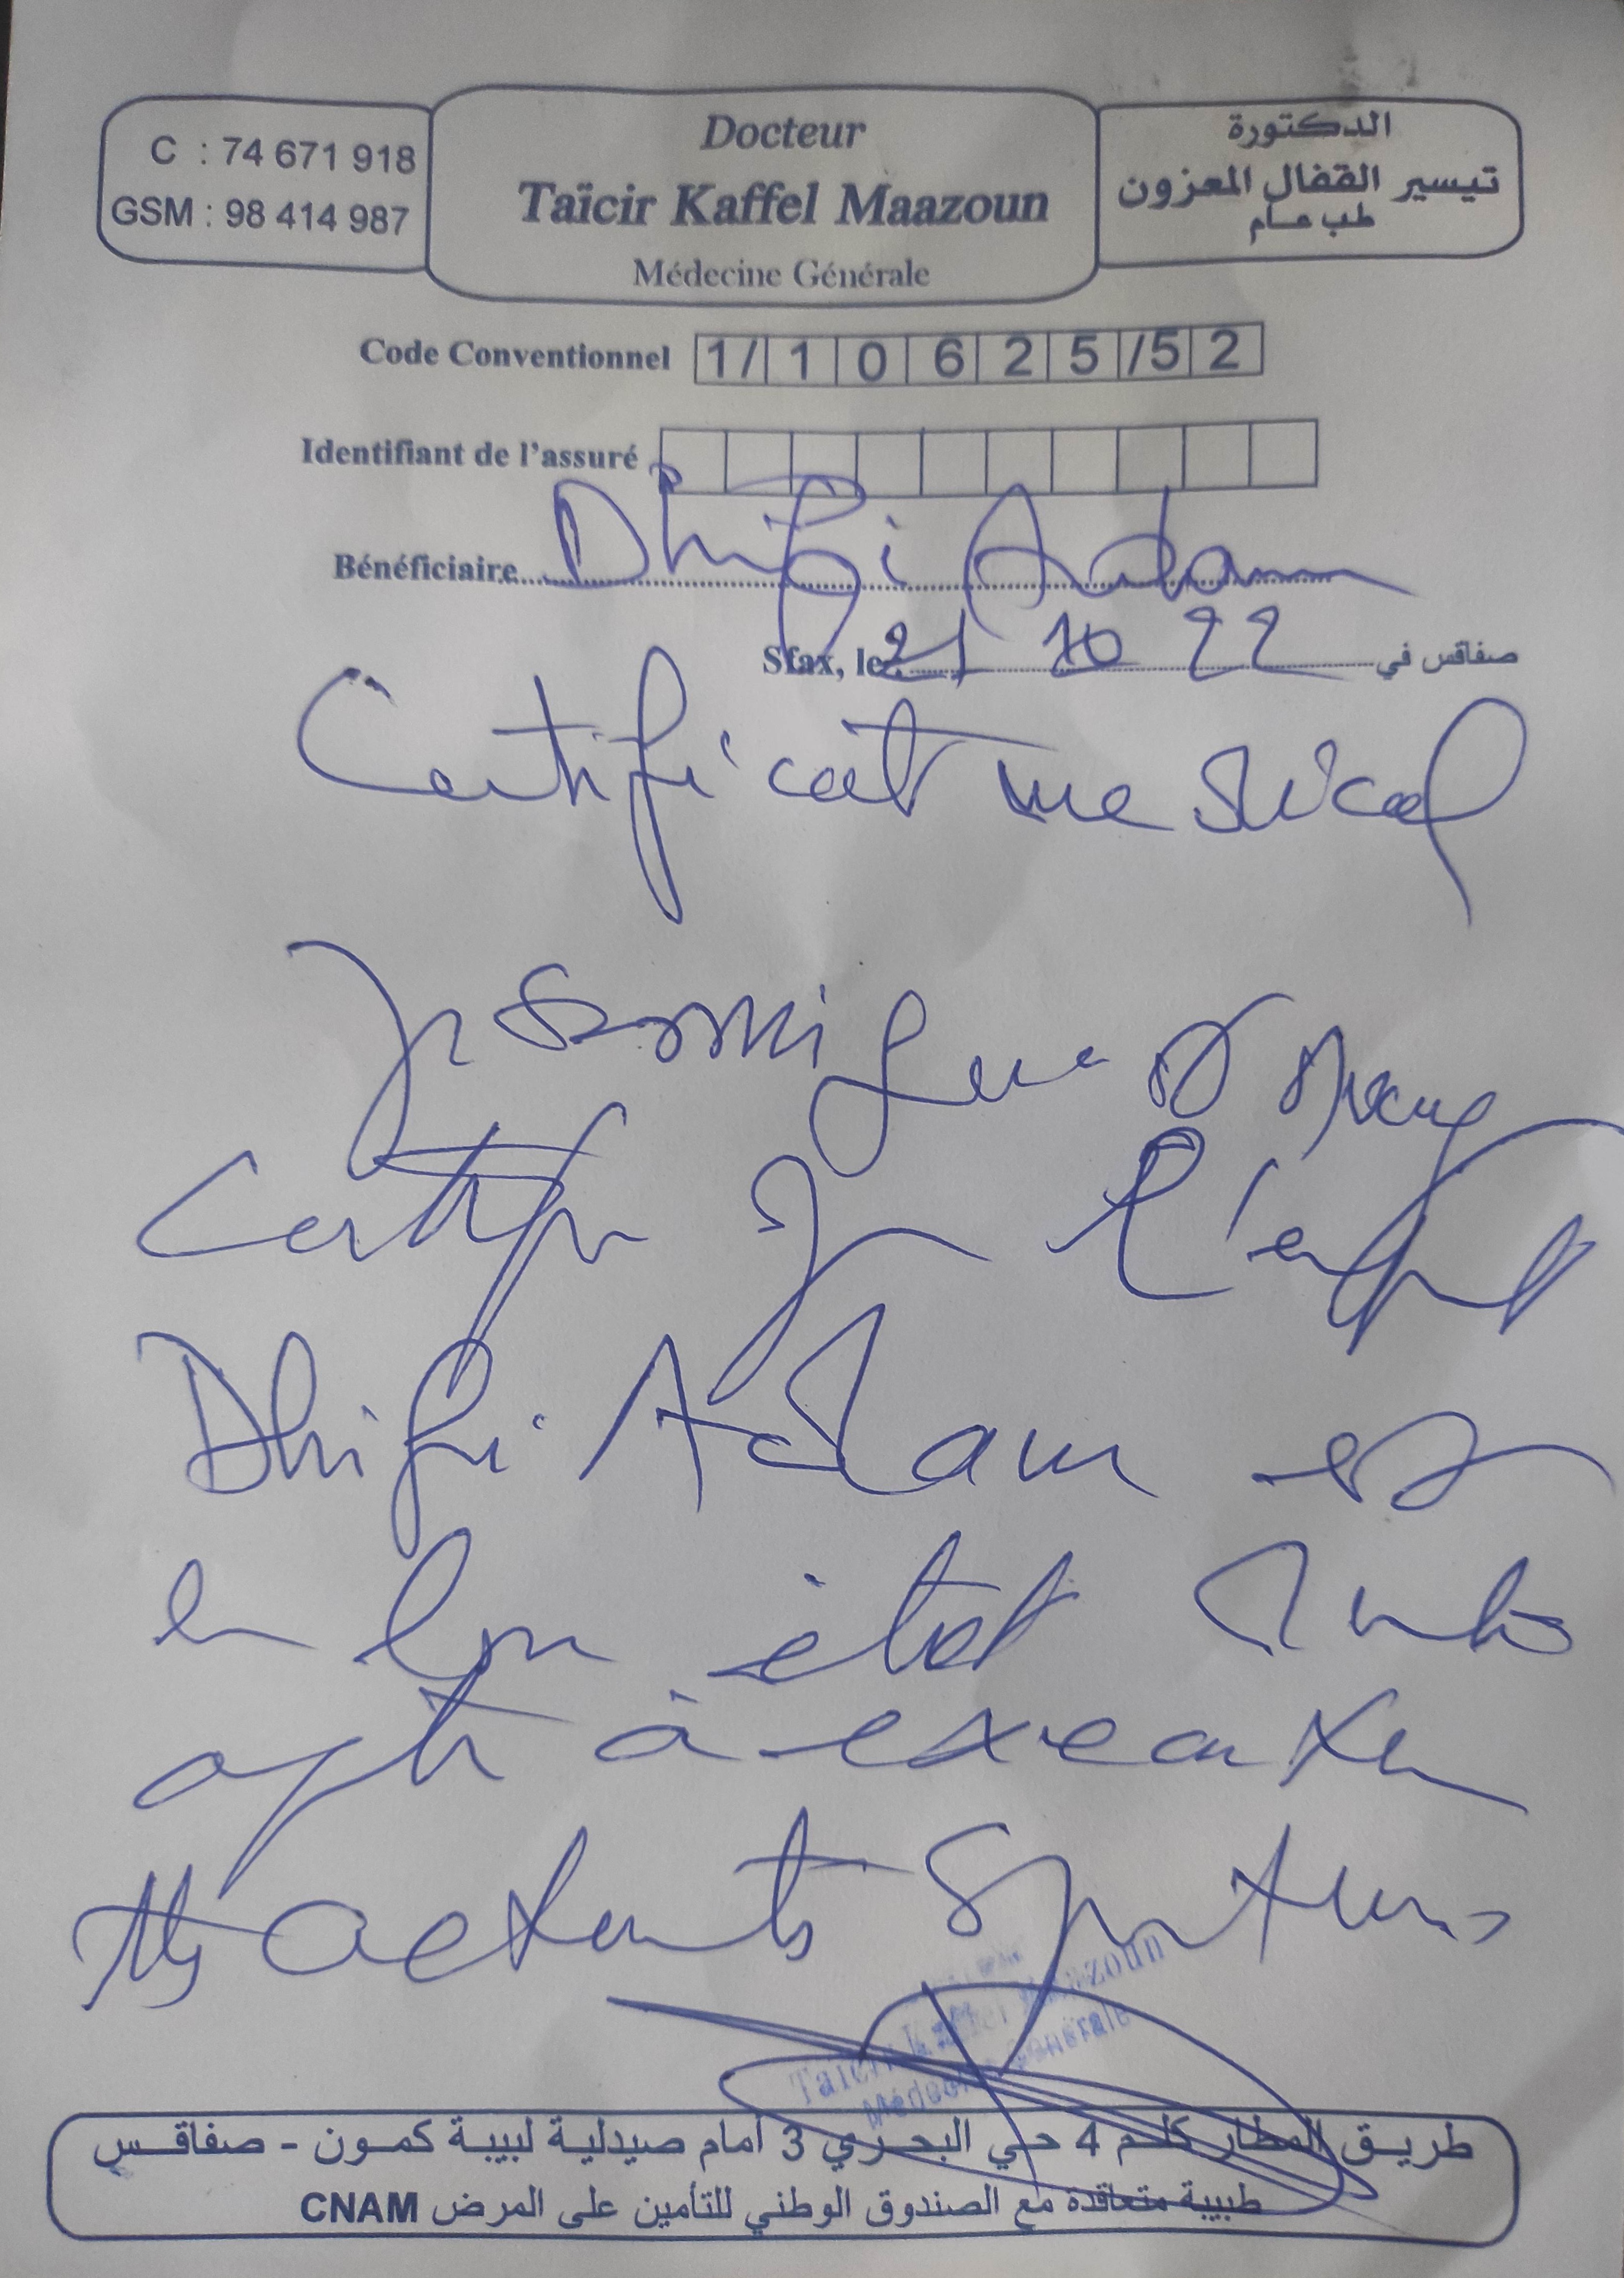 C : 74 671 918
GSM : 98 414 987
Docteur
Taïcir Kaffel Maazoun
Médecine Générale
الدكتورة
تيسير القفال المعزون
طب عام
Code Conventionnel 1/ 1 0 6 2 5 /5 2
Identifiant de l'assuré
Bénéficiaire Dhifi Adam
Sfax, le 21 10 22 صفاقس في
Certificat medical
Je soussigné
Certifie que l'enfant
Dhifi Adam est
en bon état
apte à executer
activités sportives
Taicir Kaffel Maazoun
Médecine Générale
طريق المطار كلم 4 حي البحري 3 أمام صيدلية لبيبة كمون - صفاقس
طبيبة متعاقدة مع الصندوق الوطني للتأمين على المرض CNAM